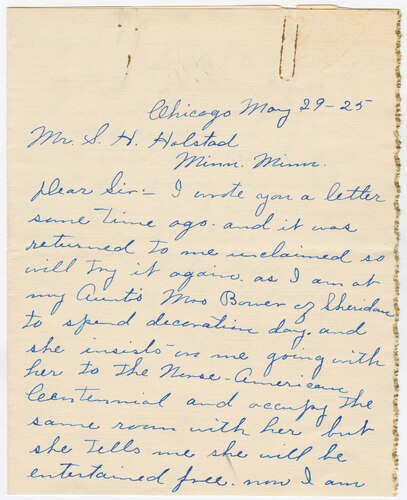 Chicago May 29-25
Mr. S. H. Holstad
Minn. Minn.
Dear Sir:- I wrote you a letter
some time ago. and it was
returned to me unclaimed so
will try it again. as I am at
my Aunt's Mrs Bower of Sheridan
to spend decoration day. and
she insists on me going with
her to the Norse-American
Centennial and occupy the
same room with her but
she tells me she will be
entertained free. now I am